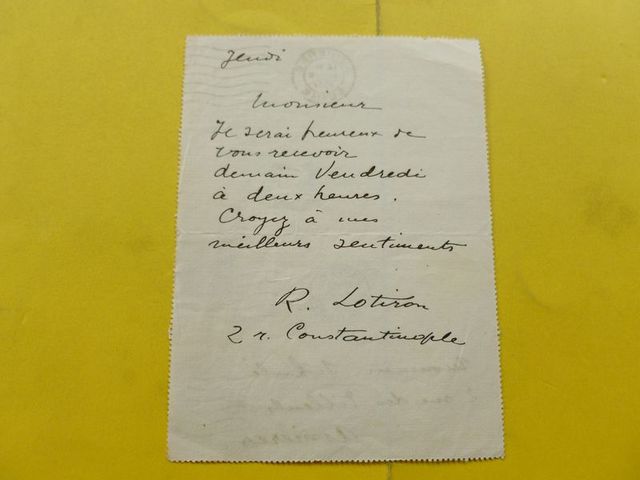 Jeudi
Monsieur
Je serai heureux de
vous recevoir
demain Vendredi
à deux heures.
Croyez à mes
meilleurs sentiments
R. Lotiron
2 r. Constantinople